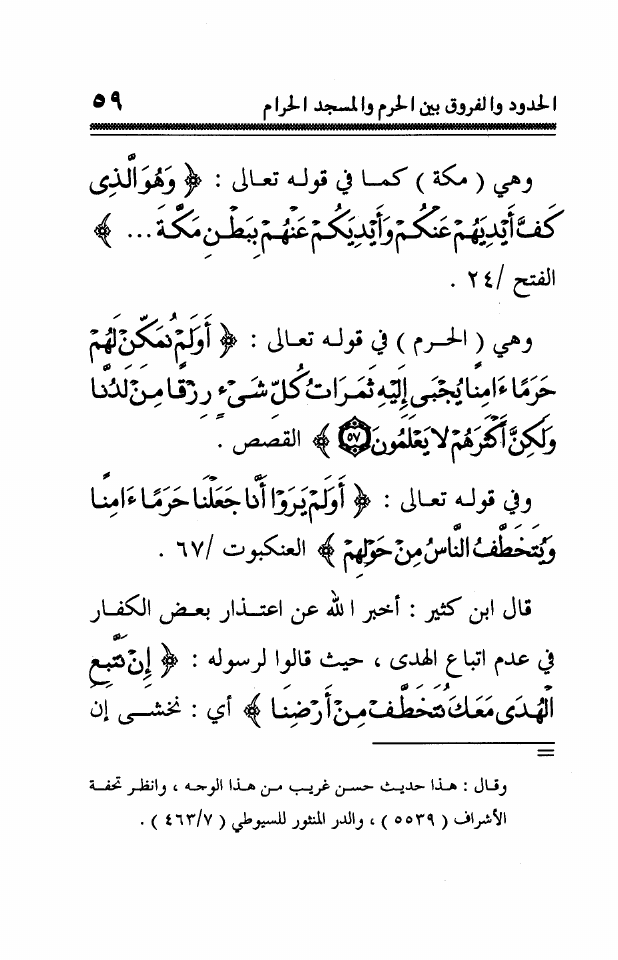 الحدود والفروق بين الحرم والمسجد الحرام ٥٩
وهي ( مكة ) كما في قوله تعالى : ﴿ وَهُوَ الَّذِى
كَفَّ أَيْدِيَهُمْ عَنكُمْ وَأَيْدِيَكُمْ عَنْهُم بِبَطْنِ مَكَّةَ ... ﴾
الفتح /٢٤ .
وهي ( الحرم ) في قوله تعالى : ﴿ أَوَلَمْ نُمَكِّن لَّهُمْ
حَرَمًا ءَامِنًا يُجْبَى إِلَيْهِ ثَمَرَاتُ كُلِّ شَىْءٍ رِزْقًا مِن لَّدُنَّا
وَلَكِنَّ أَكْثَرَهُمْ لَا يَعْلَمُونَ ٥٧ ﴾ القصص .
وفي قوله تعالى : ﴿ أَوَلَمْ يَرَوْا أَنَّا جَعَلْنَا حَرَمًا ءَامِنًا
وَيُتَخَطَّفُ النَّاسُ مِنْ حَوْلِهِمْ ﴾ العنكبوت /٦٧ .
قال ابن كثير : أخبر الله عن اعتذار بعض الكفار
في عدم اتباع الهدى ، حيث قالوا لرسوله : ﴿ إِن نَّتَّبِعِ
الْهُدَى مَعَكَ نُتَخَطَّفْ مِنْ أَرْضِنَا ﴾ أي : نخشى إن
=
وقال : هذا حديث حسن غريب من هذا الوجه ، وانظر تحفة
الأشراف ( ٥٥٣٩ ) ، والدر المنثور للسيوطي ( ٤٦٣/٧ ) .